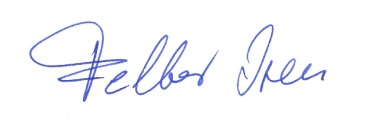 Felber Iren